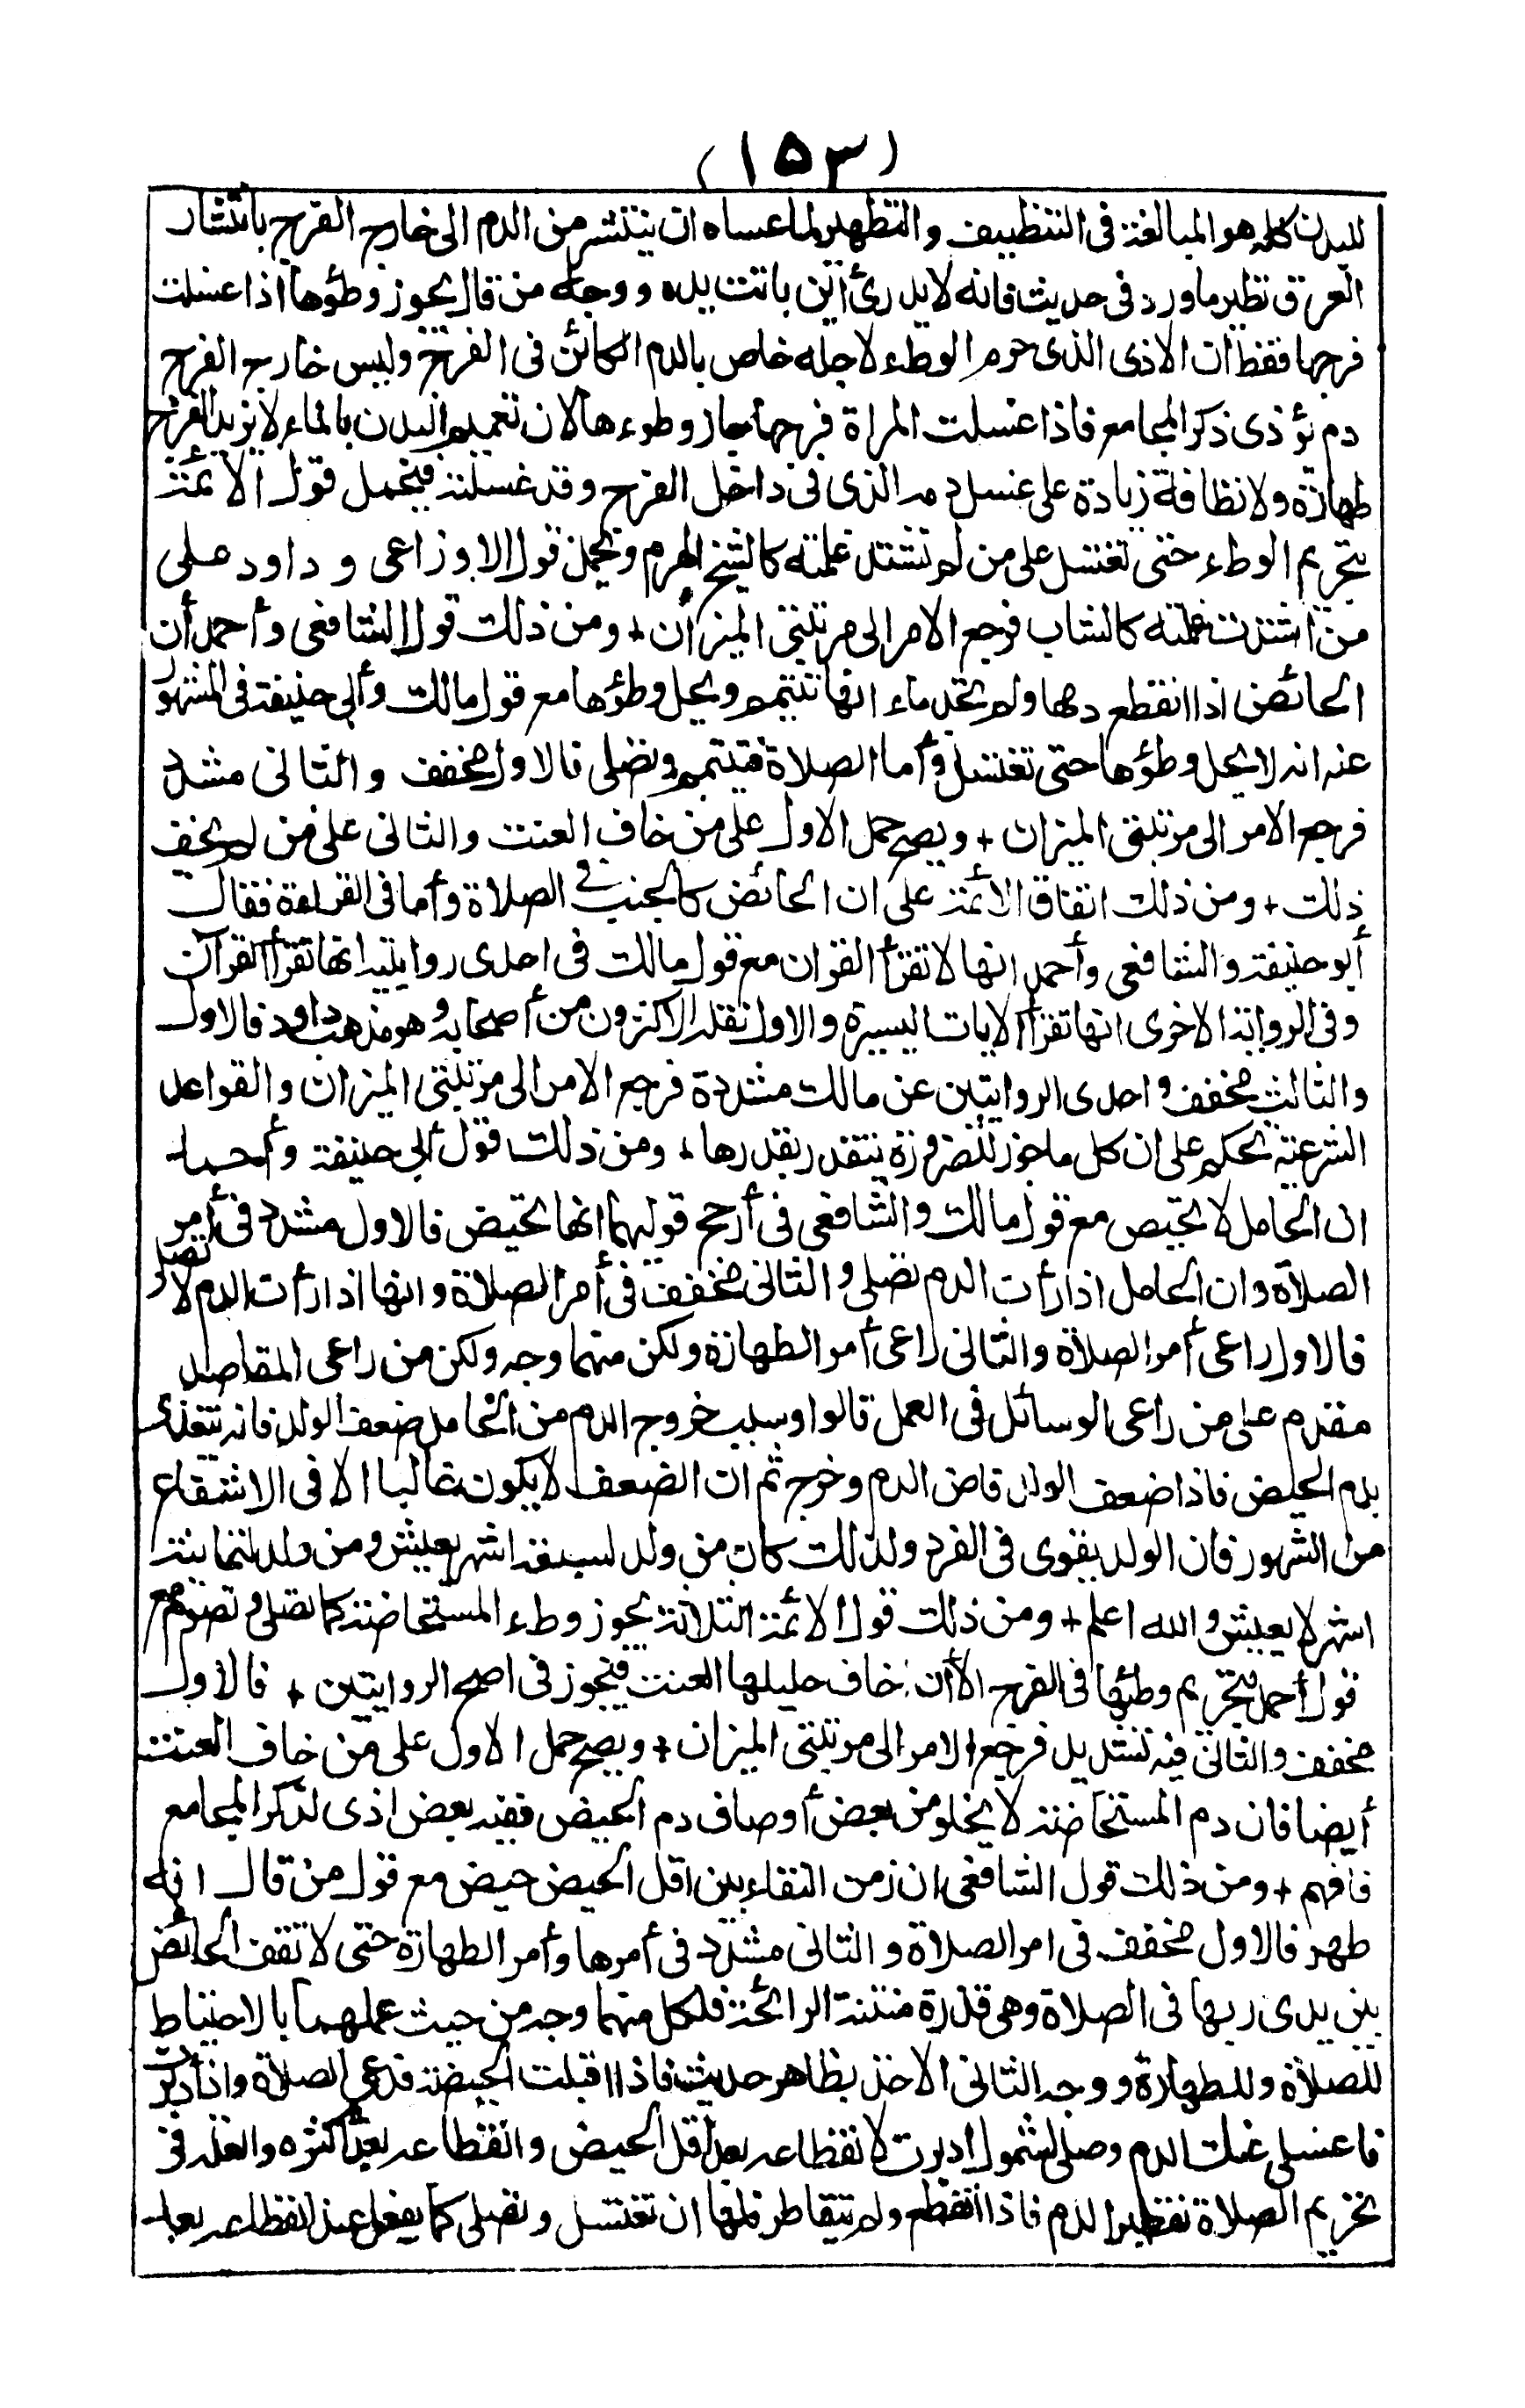 (١٥٣)
للبدن كله هو المبالغة فى التنظيف والتطهير لما عساه ان ينتشر من الدم الى خارج الفرج بانتشار
العرق نظير ما ورد فى حديث فانه لا يدرى أين باتت يده ووجه من قال يجوز وطؤها اذا غسلت
فرجها فقط ان الاذى الذى حرم الوطء لاجله خاص بالدم الكائن فى الفرج وليس خارج الفرج
دم يؤذى ذكر المجامع فاذا غسلت المراة فرجها جاز وطوءها لان تعميم البدن بالماء لا يزيد الفرج
طهارة ولا نظافة زيادة على غسل دمه الذى فى داخل الفرج وقد غسلته فيحمل قول الأئمة
بتحريم الوطء حتى تغتسل على من لم تشتد غلمته كالشيخ الهرم ويحمل قول الاوزاعى وداود على
من اشتدت غلمته كالشاب فرجع الامر الى مرتبتى الميزان + ومن ذلك قول الشافعى وأحمد أن
الحائض اذا انقطع دمها ولم تجد ماء انها تتيمم ويحل وطؤها مع قول مالك وأبى حنيفة فى المشهور
عنه انه لا يحل وطؤها حتى تغتسل وأما الصلاة فتيتمم وتصلى فالاول مخفف والثانى مشدد
فرجع الامر الى مرتبتى الميزان + ويصح حمل الاول على من خاف العنت والثانى على من لم يخف
ذلك + ومن ذلك اتفاق الأئمة على ان الحائض كالجنب فى الصلاة وأما فى القراءة فقال
أبو حنيفة والشافعى وأحمد انها لا تقرأ القران مع قول مالك فى احدى روايتيه انها تقرأ القرآن
وفى الرواية الاخرى انها تقرأ الايات اليسيرة والاول نقله الاكثرون من أصحابه وهو مذهب داود فالاول
والثالث مخفف واحدى الروايتين عن مالك مشددة فرجع الامر الى مرتبتى الميزان والقواعد
الشرعية تحكم على ان كل ما جوز للضرورة يتقدر بقدرها + ومن ذلك قول أبى حنيفة وأحمد
ان الحامل لا تحيض مع قول مالك والشافعى فى أرجح قوليهما انها تحيض فالاول مشدد فى أمر
الصلاة وان الحامل اذا رأت الدم تصلى والثانى مخفف فى أمر الصلاة وانها اذا رأت الدم لا تصلى
فالاول راعى أمر الصلاة والثانى راعى أمر الطهارة ولكن منهما وجه ولكن من راعى المقاصد
مقدم على من راعى الوسائل فى العمل قالوا وسبب خروج الدم من الحامل ضعف الولد فانه يتغذى
بدم الحيض فاذا ضعف الولد فاض الدم وخرج ثم ان الضعف لا يكون غالبا الا فى الاشفاع
من الشهور فان الولد يقوى فى الفرد ولذلك كان من ولد لسبعة اشهر يعيش ومن ولد لثمانية
اشهر لا يعيش والله اعلم + ومن ذلك قول الأئمة الثلاثة يجوز وطء المستحاضة كما تصلى وتصوم مع
قول أحمد بتحريم وطئها فى الفرج الا أن خاف حليلها العنت فيجوز فى اصح الروايتين + فالاول
مخفف والثانى فيه تشديد فرجع الامر الى مرتبتى الميزان + ويصح حمل الاول على من خاف العنت
أيضا فان دم المستحاضة لا يخلو من بعض أوصاف دم الحيض ففيه بعض اذى لذكر المجامع
فافهم + ومن ذلك قول الشافعى ان زمن النقاء بين اقل الحيض حيض مع قول من قال انه
طهر فالاول مخفف فى امر الصلاة والثانى مشدد فى أمرها وأمر الطهارة حتى لا تقف الحائض
بين يدى ربها فى الصلاة وهى قذرة منتنة الرائحة فلكل منهما وجه من حيث عملهما بالاحتياط
للصلاة وللطهارة ووجه الثانى الاخذ بظاهر حديث فاذا اقبلت الحيضة فدعى الصلاة واذا أدبرت
فاغسلى عنك الدم وصلى لشمول ادبرت لانقطاعه بعد أقل الحيض وانقطاعه بعد أكثره والعلة فى
تحريم الصلاة تقطير الدم فاذا انقطع ولم يتقاطر فلها ان تغتسل وتصلى كما يفعل عند انقطاعه بعد